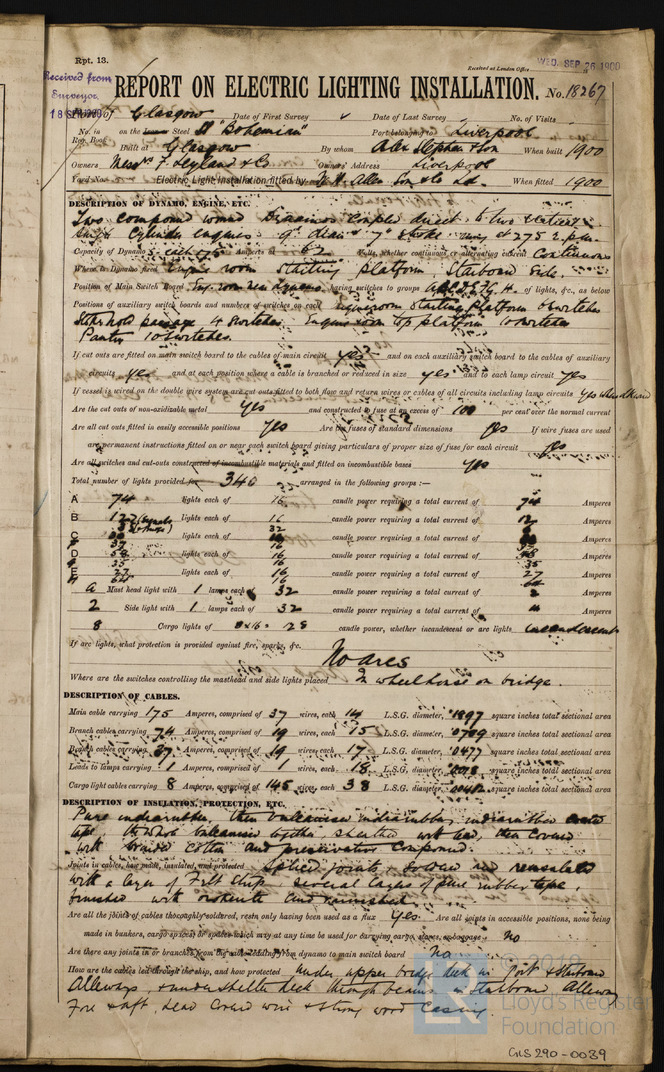 Rpt. 13.
Received at London Office WED. SEP 26 1900
Received from
Surveyor
18 SEP 1900
REPORT ON ELECTRIC LIGHTING INSTALLATION. No. 18267
Port of Glasgow Date of First Survey Date of Last Survey No. of Visits
No. in on the Iron or Steel SS "Bohemian" Port belonging to Liverpool
Reg. Book Built at Glasgow By whom Alex Stephen & Son When built 1900
Owners Messrs F. Leyland & Co Owners' Address Liverpool
Yard No. Electric Light Installation fitted by W. H. Allen Son & Co Ld. When fitted 1900
DESCRIPTION OF DYNAMO, ENGINE, ETC.
Two compound wound Dynamos coupled direct to two vertical
single cylinder engines 9" diam 7" stroke runs at 275 r.p.m.
Capacity of Dynamo each 175 Amperes at 62 Volts, whether continuous or alternating current Continuous
Where is Dynamo fixed Engine room starting platform, Starboard Side.
Position of Main Switch Board Eng. room near dynamo having switches to groups A B C D E F G H. of lights, &c., as below
Positions of auxiliary switch boards and numbers of switches on each Engineroom starting platform 6 switches
passage 4 switches. Engine room top platform 10 switches
Pantry 10 switches.
If cut outs are fitted on main switch board to the cables of main circuit yes and on each auxiliary switch board to the cables of auxiliary
circuits yes and at each position where a cable is branched or reduced in size yes and to each lamp circuit yes
If vessel is wired on the double wire system are cut outs fitted to both flow and return wires or cables of all circuits including lamp circuits yes
Are the cut outs of non-oxidizable metal yes and constructed to fuse at an excess of 100 per cent over the normal current
Are all cut outs fitted in easily accessible positions yes Are the fuses of standard dimensions yes If wire fuses are used
are permanent instructions fitted on or near each switch board giving particulars of proper size of fuse for each circuit yes
Are all switches and cut-outs constructed of incombustible materials and fitted on incombustible bases yes
Total number of lights provided for 340 arranged in the following groups :—
A 74 lights each of 16 candle power requiring a total current of 74 Amperes
B 12 lights each of 16 candle power requiring a total current of 12 Amperes
C lights each of candle power requiring a total current of Amperes
D lights each of 16 candle power requiring a total current of Amperes
E 27 lights each of 16 candle power requiring a total current of 27 Amperes
a Mast head light with 1 lamps each of 32 candle power requiring a total current of 2 Amperes
2 Side light with 1 lamps each of 32 candle power requiring a total current of 4 Amperes
8 Cargo lights of 8 x 16 = 128 candle power, whether incandescent or arc lights incandescent
If arc lights, what protection is provided against fire, sparks, &c. No arcs
Where are the switches controlling the masthead and side lights placed In wheelhouse on bridge.
DESCRIPTION OF CABLES.
Main cable carrying 175 Amperes, comprised of 37 wires, each 14 L.S.G. diameter, .1897 square inches total sectional area
Branch cables carrying 74 Amperes, comprised of 19 wires, each 15 L.S.G. diameter, .0769 square inches total sectional area
Branch cables carrying 37 Amperes, comprised of 19 wires, each 17 L.S.G. diameter, .0477 square inches total sectional area
Leads to lamps carrying 1 Amperes, comprised of 1 wires, each 18 L.S.G. diameter, .0018 square inches total sectional area
Cargo light cables carrying 8 Amperes, comprised of 145 wires, each 38 L.S.G. diameter, .00412 square inches total sectional area
DESCRIPTION OF INSULATION, PROTECTION, ETC.
Pure indiarubber, then vulcanised indiarubber, indiarubber coated
tape, the whole vulcanised together, sheathed with lead, then covered
with braided cotton and preservative compound.
Joints in cables, how made, insulated, and protected Spliced joints, soldered and reinsulated
with a layer of Felt strip, several layers of pure rubber tape,
finished with and varnished.
Are all the joints of cables thoroughly soldered, resin only having been used as a flux yes Are all joints in accessible positions, none being
made in bunkers, cargo spaces, or spaces which may at any time be used for carrying cargo, stores, or baggage No
Are there any joints in or branches from the cable leading from dynamo to main switch board No
How are the cables led through the ship, and how protected under upper bridge deck in Port & Starboard
Alleyways, & under shelter deck through beams in Starboard Alleyway
Fore & aft, lead covered wire & strong wood casing.
© 2018
Lloyd's Register
Foundation
GLS290-0039